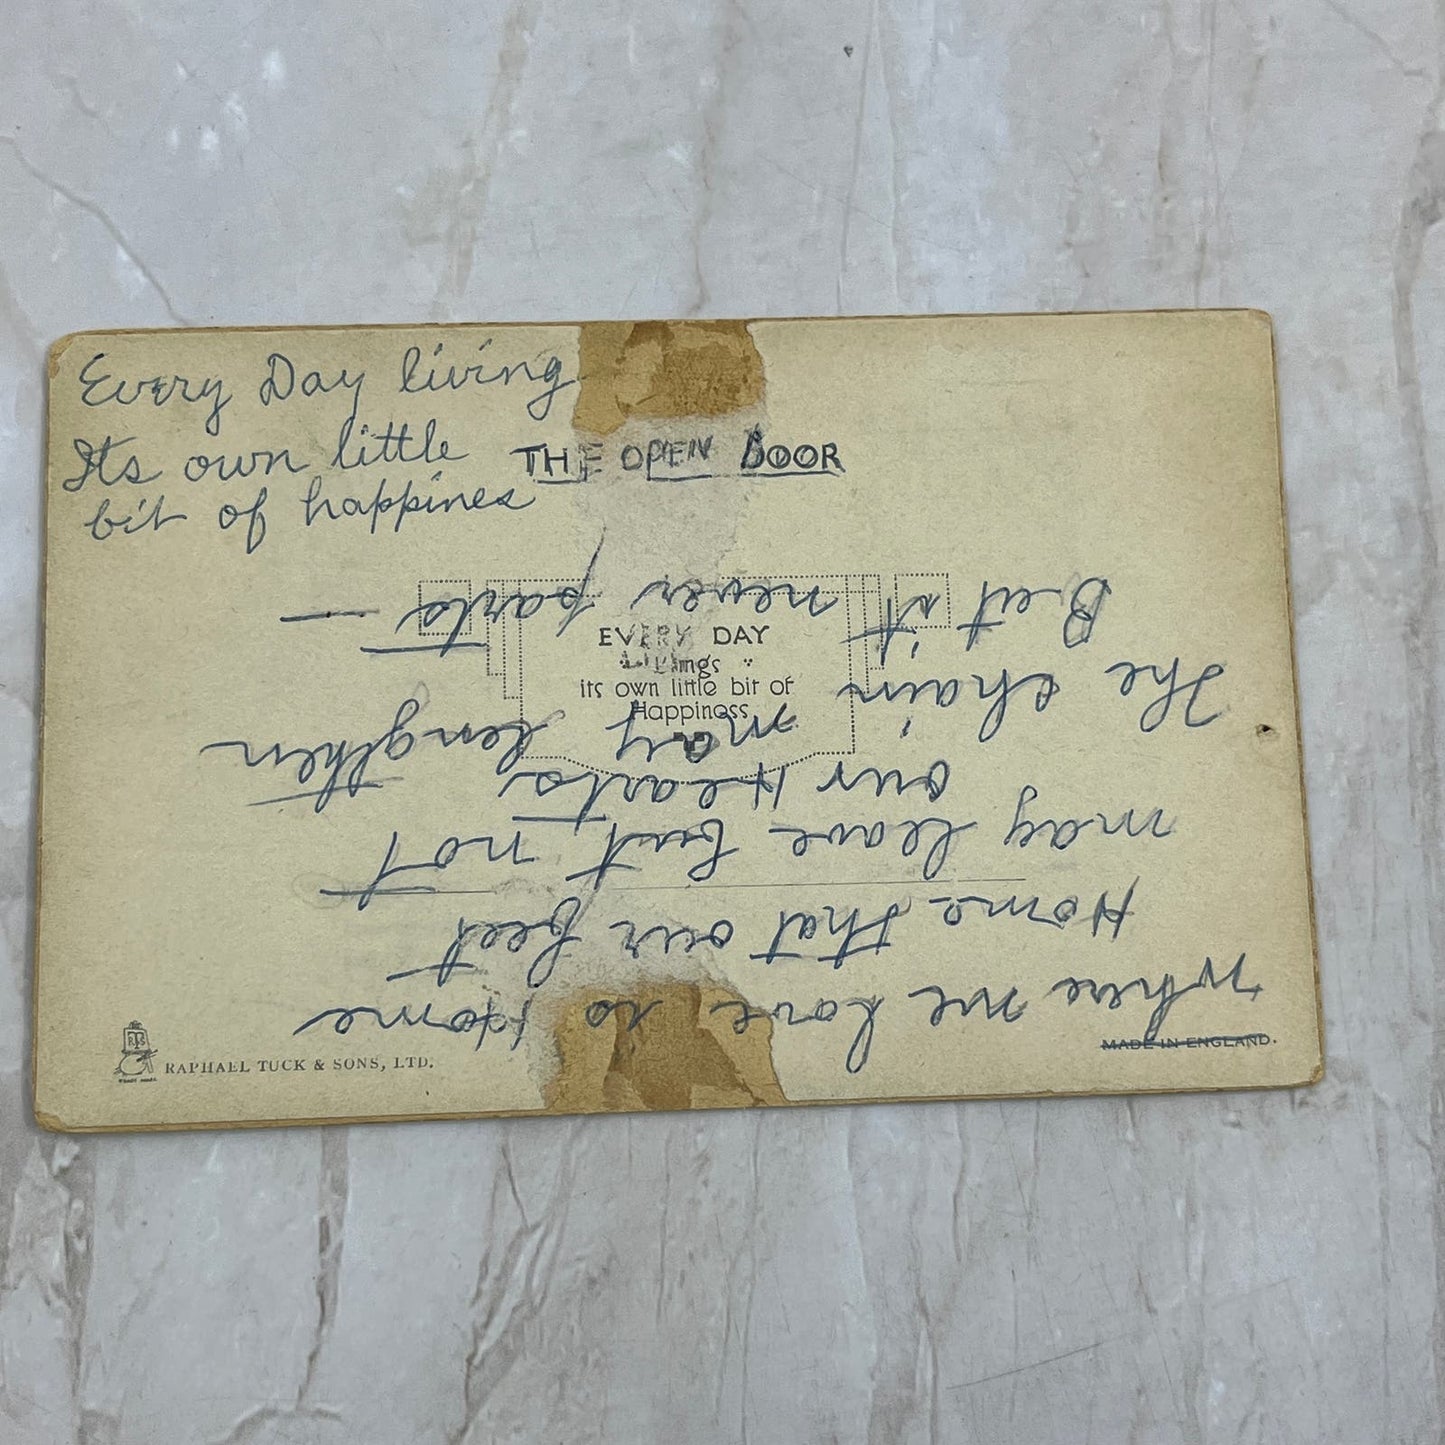 Every Day living
Its own little
bit of happines
THE OPEN DOOR
EVERY DAY
its own little bit of
Happiness
RAPHAEL TUCK & SONS, LTD.
MADE IN ENGLAND.
Where we love is Home
Home that our feet
may leave but not
our Hearts
The chain may lengthen
But it never parts —